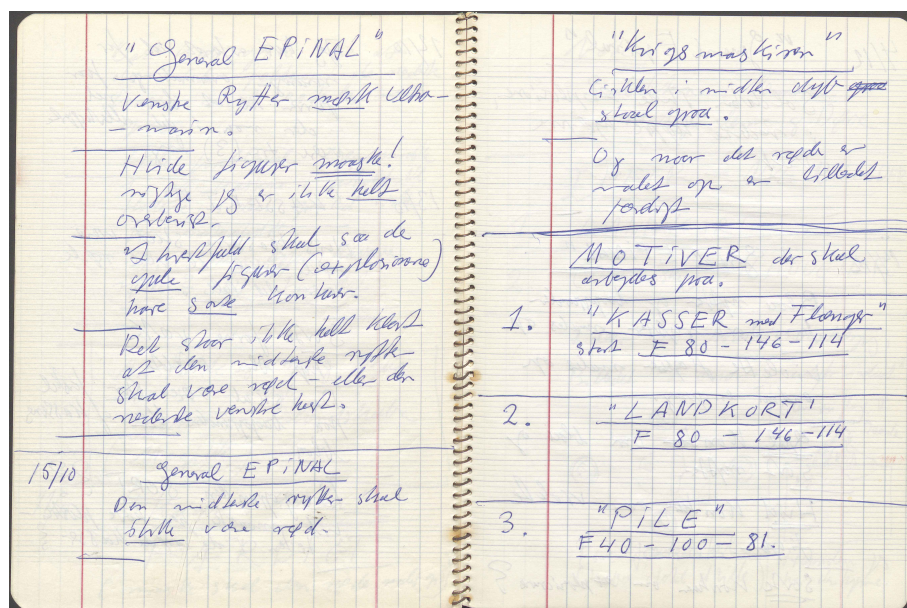 "General EPINAL"
Venstre Rytter mørk Ultra-
- marin.
Hvide figurer maaske!
rigtige jeg er ikke helt
overbevist.
I hvertfald skal saa de
gule figurer (explosionerne)
have sorte konturer.
Det staar ikke helt klart
at den midterste rytter
skal være rød - eller den
nederste venstre hest.
15/10
General EPINAL
Den midterste rytter skal
ikke være rød.
"Krigsmaskinen"
Cirklen i midten dyb
staal graa.
Og naar det røde er
malet op er billedet
færdigt
MOTIVER der skal
arbejdes paa.
1. "KASSER med Flænger"
start F 80 - 146 - 114
2. "LANDKORT"
F 80 - 146 - 114
3. "PILE"
F 40 - 100 - 81.